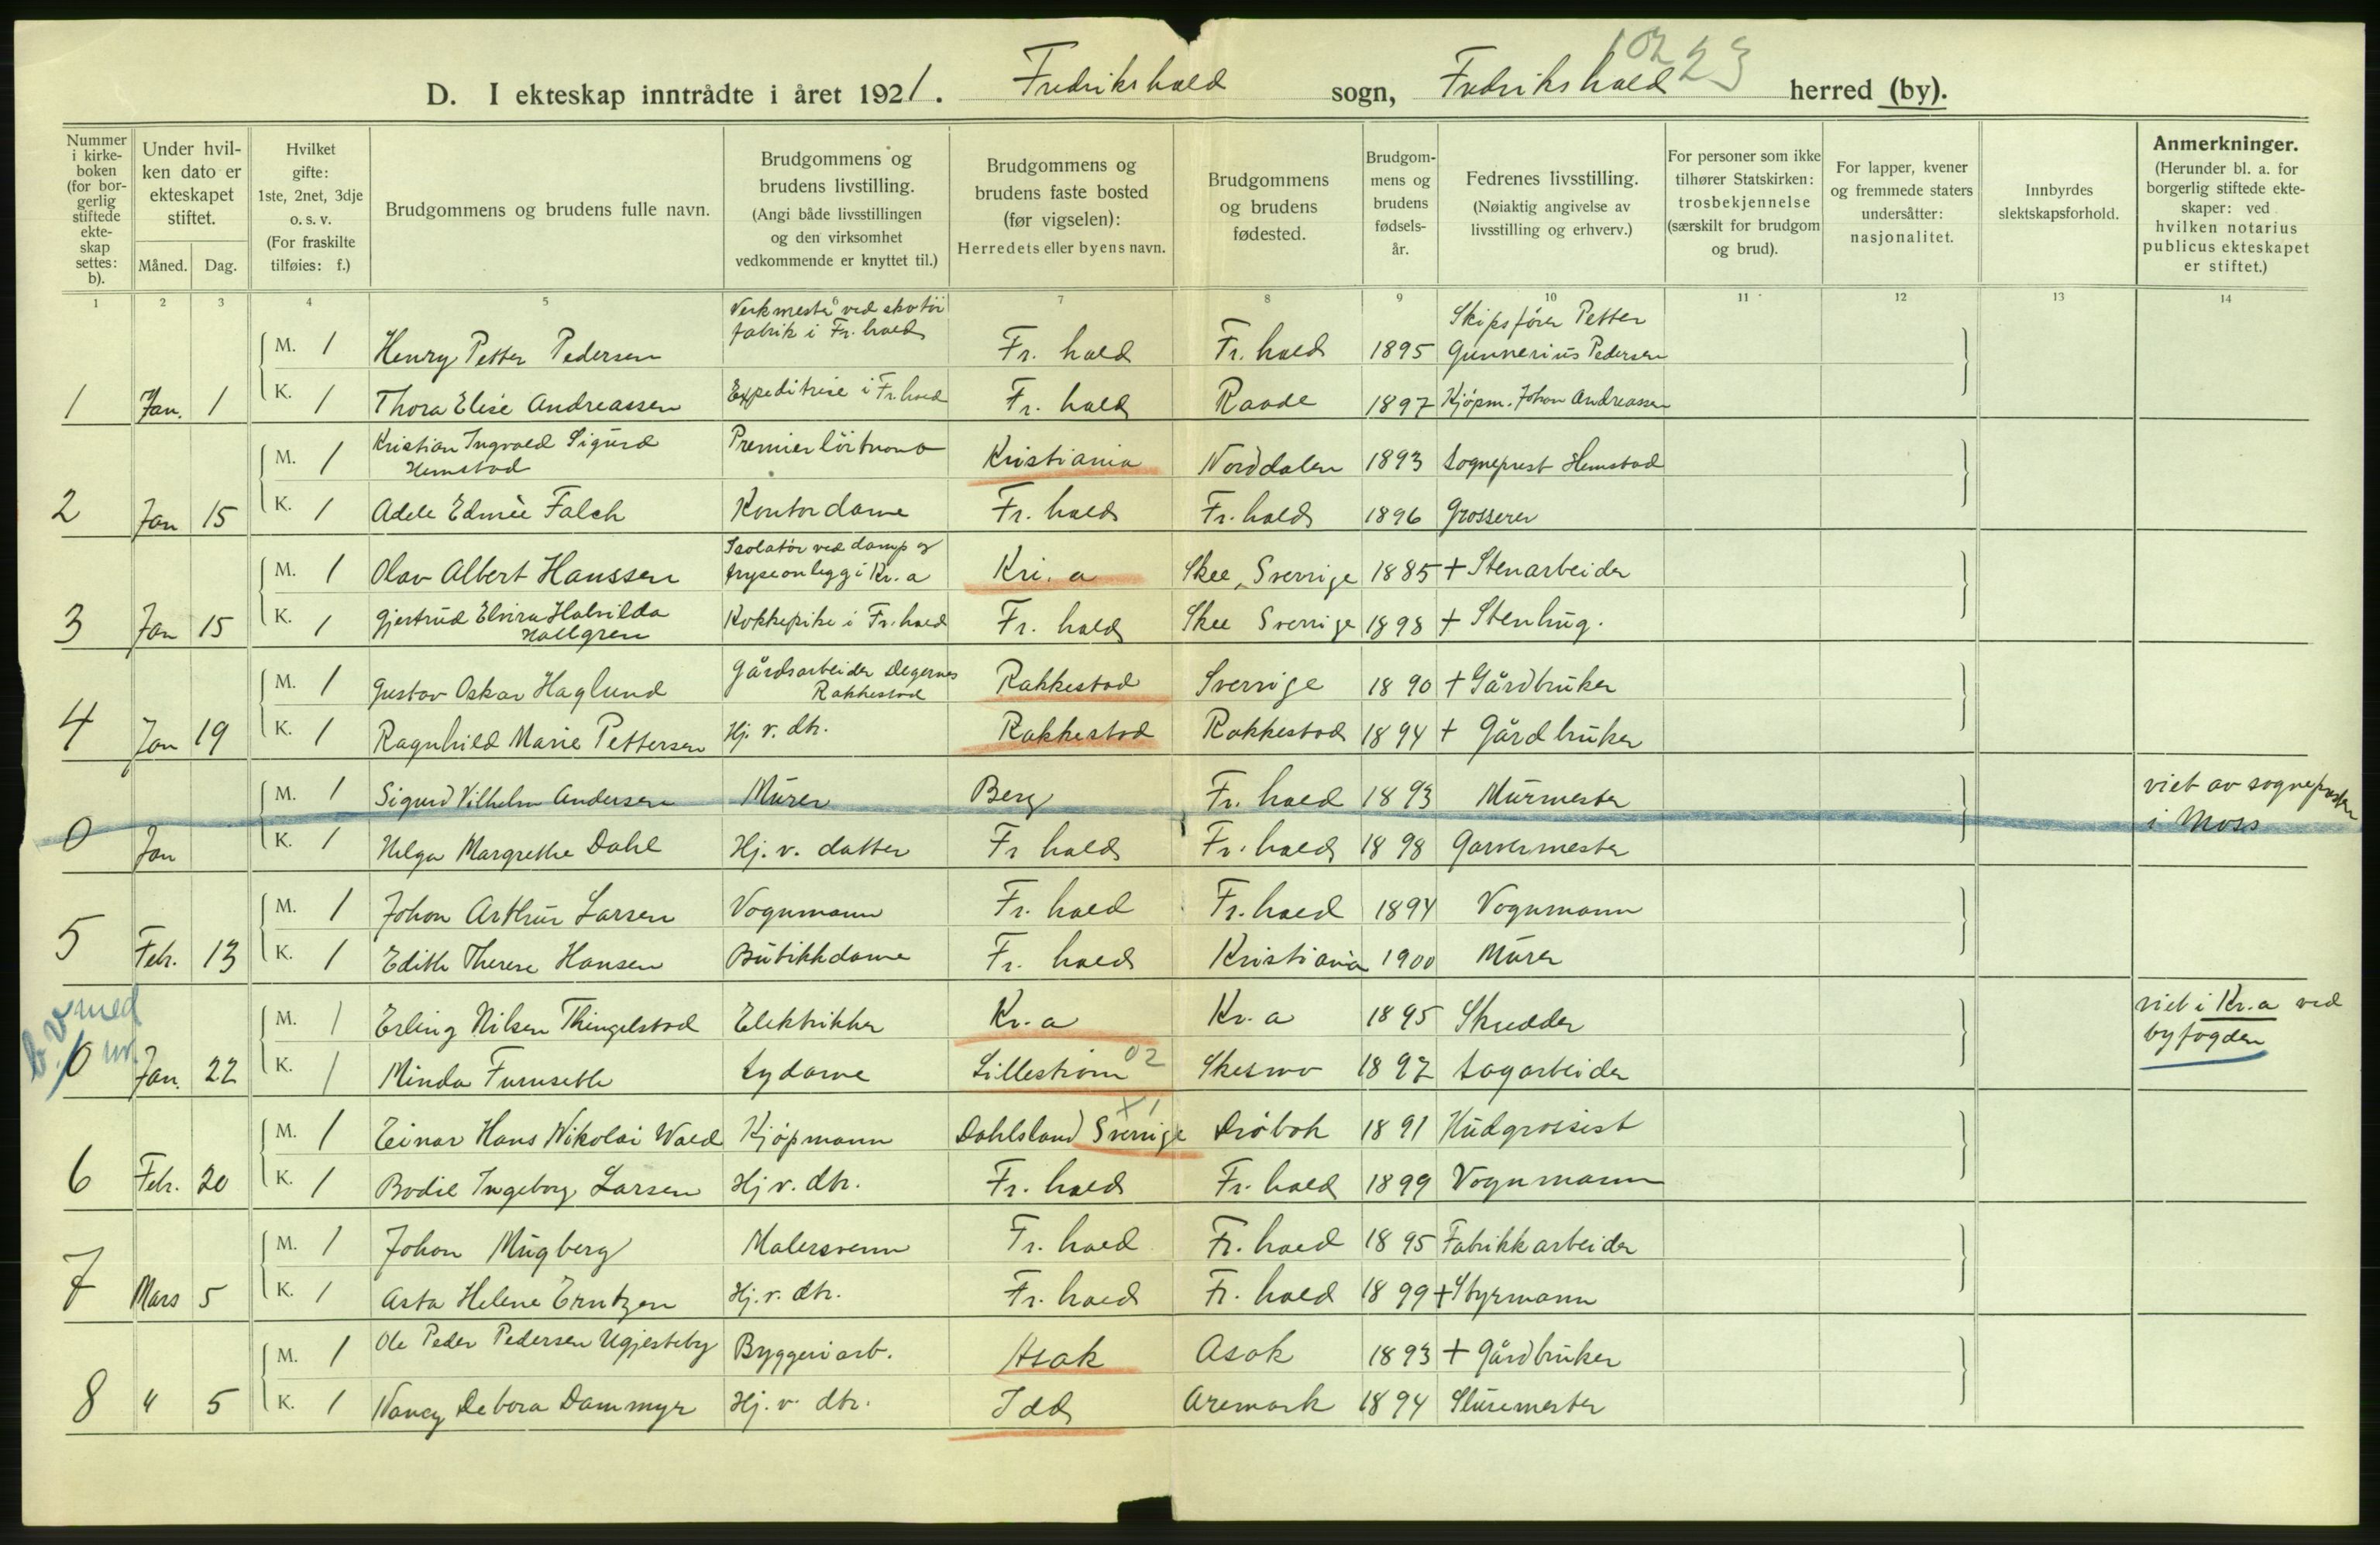 1023
D. I ekteskap inntrådte i året 1921. Fredrikshald sogn, Fredrikshald herred (by).
Nummer i kirke-boken (for bor-gerlig stiftede ekte-skap settes: b).
Under hvil-ken dato er ekteskapet stiftet.
Måned. Dag.
Hvilket gifte: 1ste, 2net, 3dje o. s. v. (For fraskilte tilføies: f.)
Brudgommens og brudens fulle navn.
Brudgommens og brudens livstilling. (Angi både livsstillingen og den virksomhet vedkommende er knyttet til.)
Brudgommens og brudens faste bosted (før vigselen): Herredets eller byens navn.
Brudgommens og brudens fødested.
Brudgom-mens og brudens fødsels-år.
Fedrenes livsstilling. (Nøiaktig angivelse av livsstilling og erhverv.)
For personer som ikke tilhører Statskirken: trosbekjennelse (særskilt for brudgom og brud).
For lapper, kvener og fremmede staters undersåtter: nasjonalitet.
Innbyrdes slektskapsforhold.
Anmerkninger. (Herunder bl. a. for borgerlig stiftede ekte-skaper: ved hvilken notarius publicus ekteskapet er stiftet.)
1 2 3 4 5 6 7 8 9 10 11 12 13 14
M. 1 Henry Petter Pedersen Verkmester ved skotøi fabrik i Fr. hald Fr. hald Fr. hald 1895 Skipsfører Petter Gunnerius Pedersen
1 Jan. 1 K. 1 Thora Elise Andreassen Expeditrise i Fr. hald Fr. hald Raade 1897 Kjøpm. Johan Andreassen
M. 1 Kristian Ingvald Sigurd Hemstad Premierløitnant Kristiania Norddalen 1893 Sogneprest Hemstad
2 Jan 15 K. 1 Adele Edmée Falch Kontordame Fr. hald Fr. hald 1896 Grosserer
M. 1 Olav Albert Hanssen Isolatør ved damp og fryseanlegg i Kr. a Kri. a Skee, Sverrige 1885 + Stenarbeider
3 Jan 15 K. 1 Gjertrud Elvira Halvilda Hallgren Kokkepike i Fr. hald Fr. hald Skee Sverrige 1898 + Stenhug.
M. 1 Gustav Oskar Haglund Gårdsarbeider Degernes Rakkestad Rakkestad Sverrige 1890 + Gårdbruker
4 Jan 19 K. 1 Ragnhild Marie Pettersen Hj. v. dtr. Rakkestad Rakkestad 1894 + Gårdbruker
M. 1 Sigurd Vilhelm Andersen Murer Berg Fr. hald 1893 Murmester viet av sognepresten i Moss
0 Jan K. 1 Helga Margrethe Dahl Hj. v. datter Fr hald Fr. hald 1898 Garvermester
M. 1 Johan Arthur Larsen Vognmann Fr. hald Fr. hald 1894 Vognmann
5 Febr. 13 K. 1 Edith Therese Hansen Butikkdame Fr. hald Kristiania 1900 Murer
M. 1 Erling Nilsen Thingelstad Elektriker Kr. a Kr. a 1895 Skredder viet i Kr. a ved byfogden
0 Jan. 22 K. 1 Minda Furuseth Sydame Lillestrøm 02 Skesmo 1897 Sagarbeider
M. 1 Einar Hans Nikolai Wald Kjøpmann Dahlsland Sverrige Drøbak 1891 Hudgrossist
6 Febr. 20 K. 1 Bodil Ingeborg Larsen Hj v. dtr. Fr. hald Fr. hald 1899 Vognmann
M. 1 Johan Mugberg Malersvenn Fr. hald Fr. hald 1895 Fabrikkarbeider
7 Mars 5 K. 1 Asta Helene Erntzen Hj. v. dtr. Fr. hald Fr. hald 1899 + Styrmann
M. 1 Ole Peder Pedersen Ugjesteby Byggeriarb. Asak Asak 1893 + Gårdbruker
8 " 5 K. 1 Nancy Debora Dammyr Hj. v. dtr. Idd Aremark 1894 Slusemester